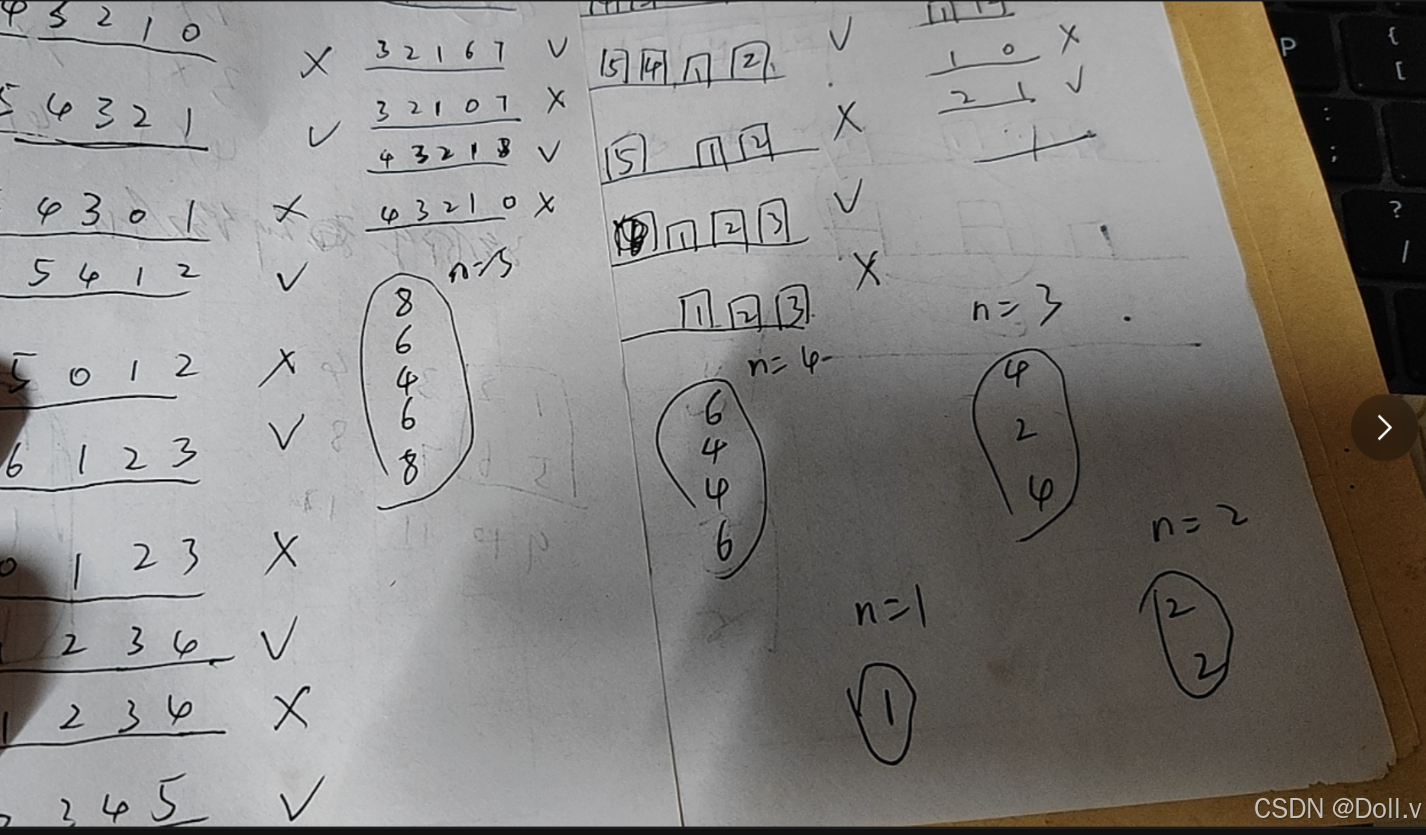 4 3 2 1 0
5 4 3 2 1 V
4 3 0 1 X
5 4 1 2 V
5 0 1 2 X
6 1 2 3 V
0 1 2 3 X
2 3 4 V
1 2 3 4 X
3 4 5 V
X
3 2 1 6 7 V
3 2 1 0 7 X
4 3 2 1 8 V
4 3 2 1 0 X
n=5
8
6
4
6
8
5 4 1 2 V
5 1 2 X
1 2 3 V
1 2 3 X
n=4
6
4
4
6
1 0 X
2 1 V
1
n=3
4
2
4
n=2
2
2
n=1
1
P
{
[
:
;
?
/
CSDN @Doll.v